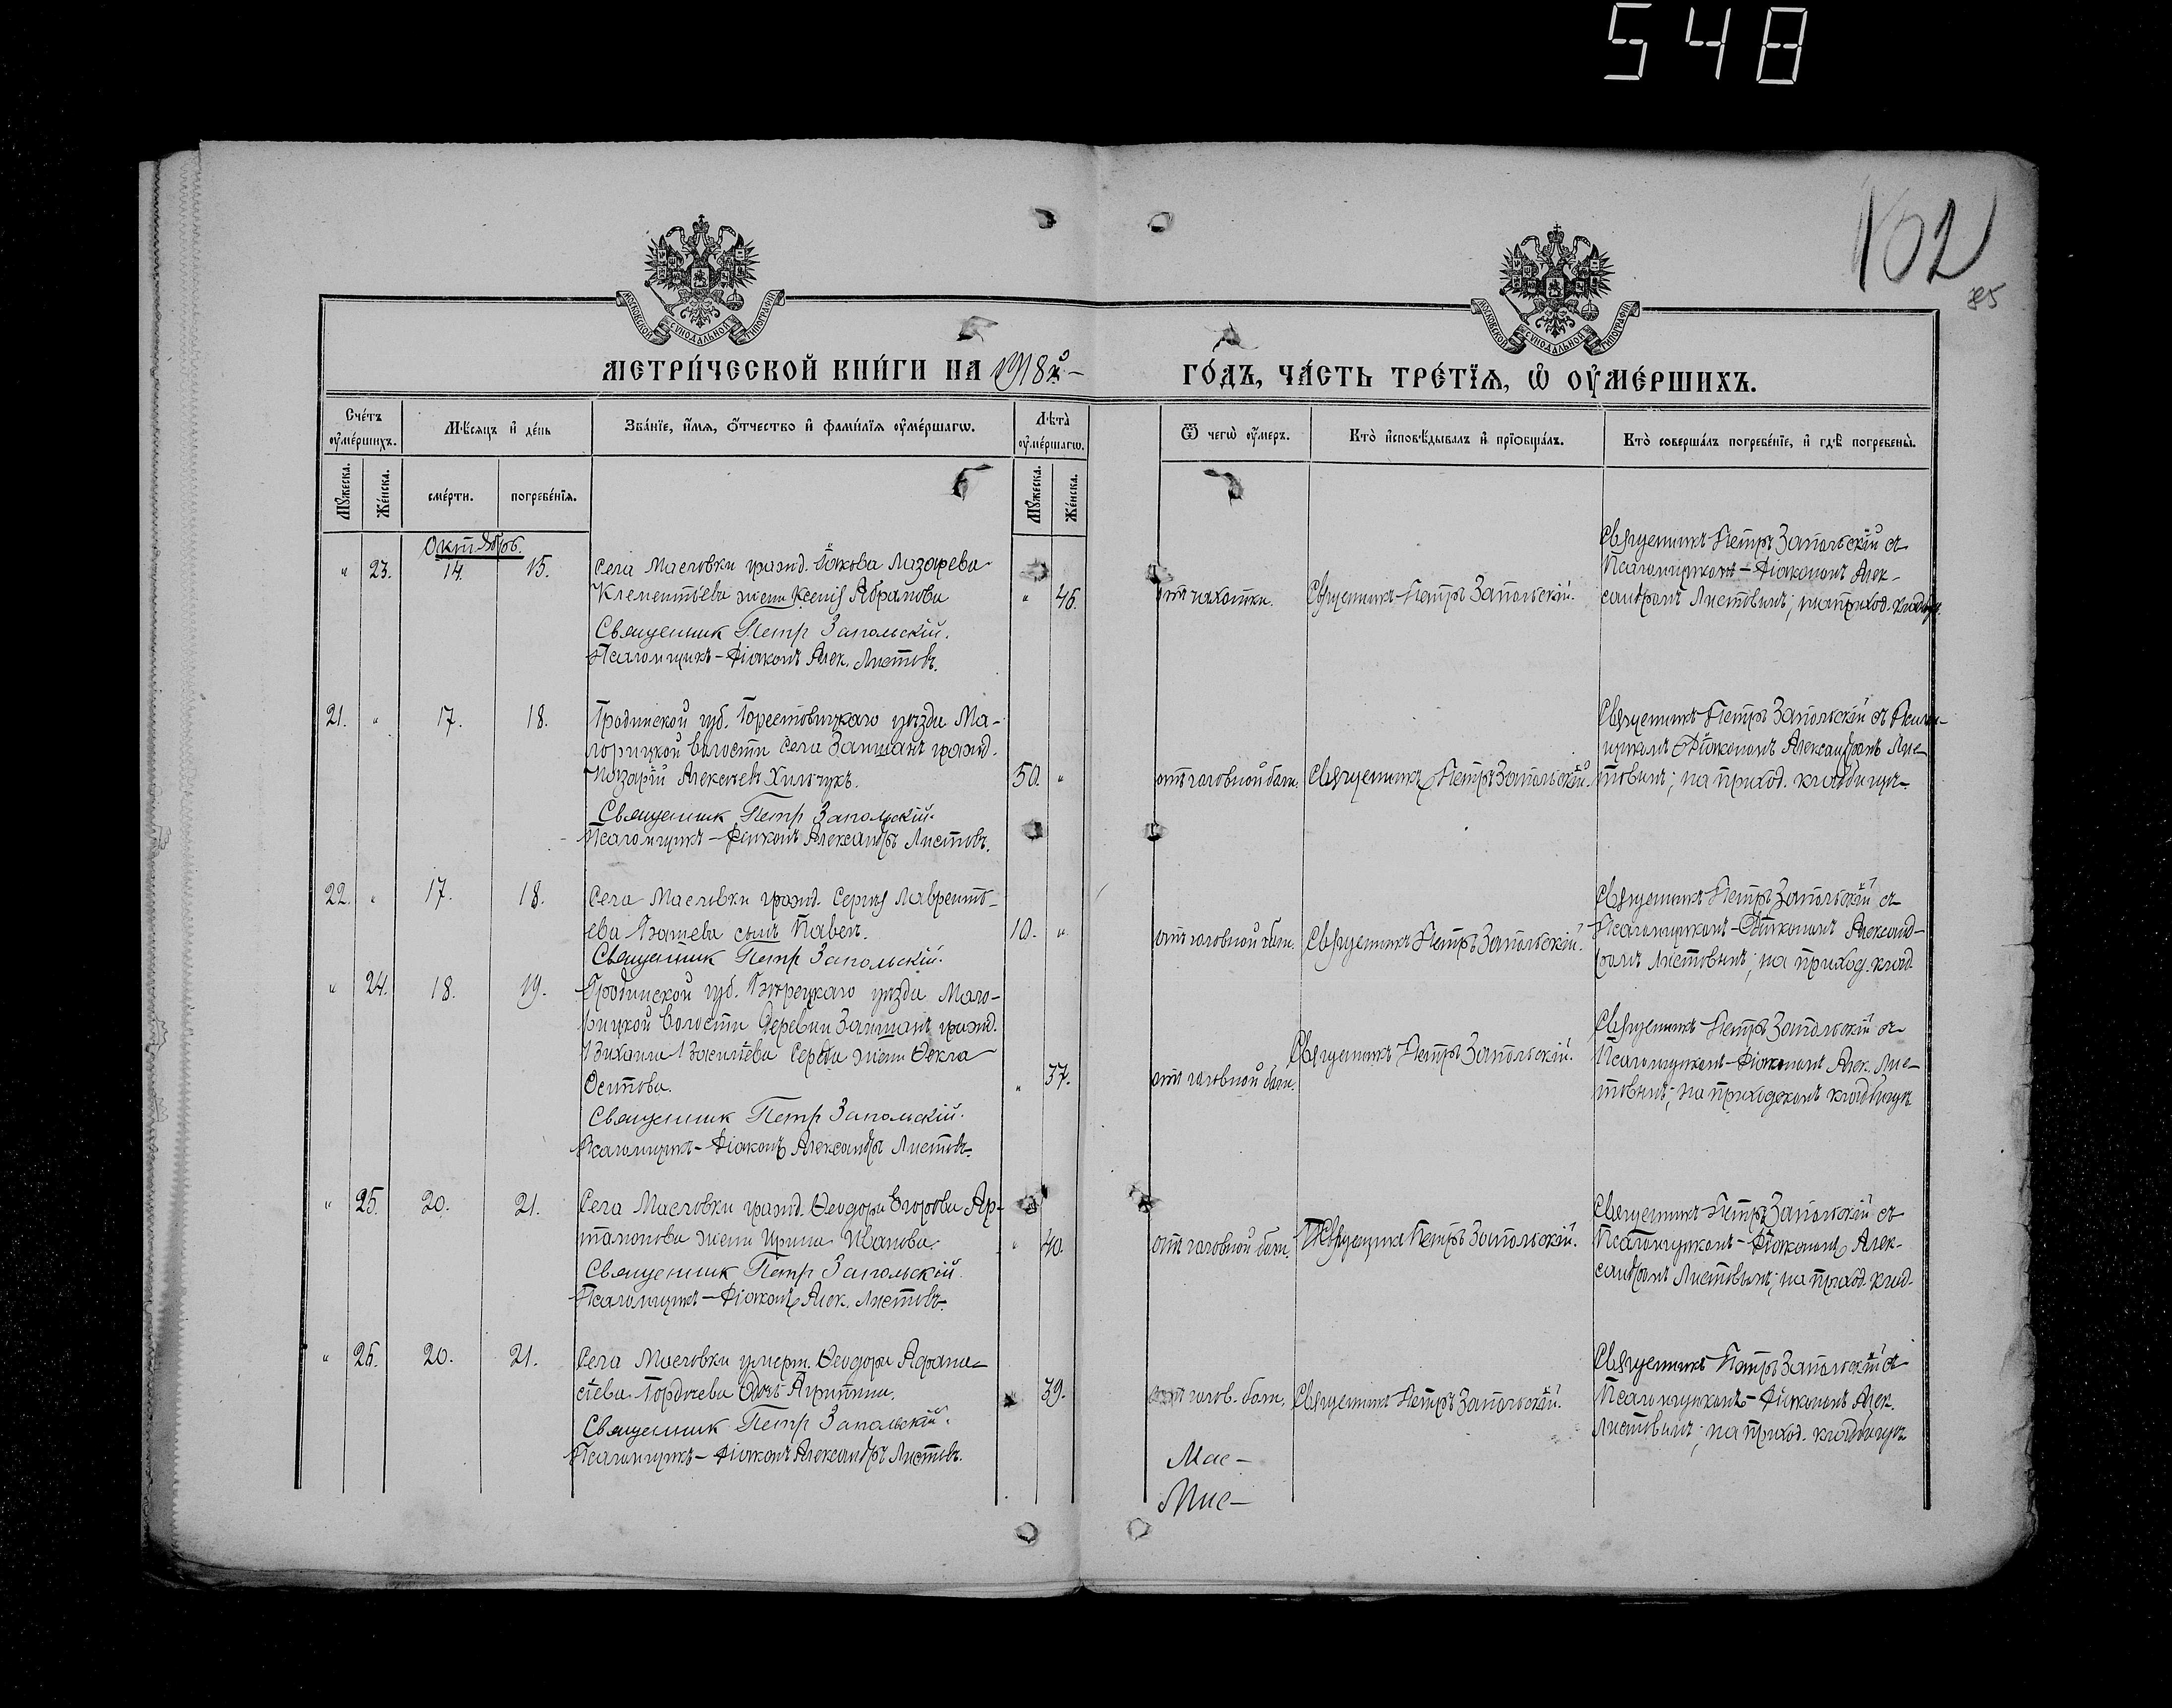 548
102
85
МОСКОВСКОЙ СѴНОДАЛЬНОЙ ТИПОГРАФІИ
МОСКОВСКОЙ СѴНОДАЛЬНОЙ ТИПОГРАФІИ
МЕТРИ́ЧЕСКОЙ КНИ́ГИ НА 1918й-
ГО́ДЪ, ЧА́СТЬ ТРЕ́ТЇѦ, Ѡ҆ ОУ҆МЕ́РШИХЪ.
Сче́тъ оу҆ме́ршихъ.
Мѣ́сяцъ и҆ де́нь
Зва́нїе, и҆́мѧ, ѻ҆́тчество и҆ фами́лїѧ оу҆ме́ршагѡ.
Лѣ́та оу҆ме́ршагѡ.
Ѿ чегѡ̀ оу҆́меръ.
Кто̀ и҆сповѣ́дывалъ и҆ прїѡбща́лъ.
Кто̀ соверша́лъ погребе́нїе, и҆ гдѣ̀ погребены̀.
Мꙋ́жеска.
Же́нска.
сме́рти.
погребе́нїѧ.
Мꙋ́жеска.
Же́нска.
Октябрь.
" 23. 14. 15.
Села Масловки гражд. Іакова Лазарева
Клементьева жена Ксенія Абрамова
Священник Петр Запольскій.
Псаломщикъ-Діаконъ Алек. Листовъ.
" 46.
от чахотки.
Священникъ Петръ Запольскій.
Священникъ Петръ Запольскій съ
Псаломщикомъ-Діакономъ Алек-
сандромъ Листовымъ; на приход. кладб.
21. " 17. 18.
Гродненской губ. Брестовицкаго уѣзда Ма-
лорицкой волости села Замшанъ гражд.
Алексѣев Хильчукъ.
Священник Петр Запольскій.
Псаломщикъ-Діаконъ Александръ Листовъ.
50. "
от головной боли.
Священникъ Петръ Запольскій.
Священникъ Петръ Запольскій съ Псалом-
щикомъ Діакономъ Александромъ Лис-
товымъ; на приход. кладбищѣ
22. " 17. 18.
Села Масловки гражд. Сергѣя Лавренть-
ева сынъ Павел.
Священник Петр Запольскій.
10. "
от головной боли.
Священникъ Петръ Запольскій.
Священникъ Петръ Запольскій съ
Псаломщикомъ-Діакономъ Александ-
ромъ Листовымъ; на приход. клад.
" 24. 18. 19.
Гродненской губ. уѣзда Мало-
рицкой волости деревни Замшанъ гражд.
жена Ѳекла
Осипова.
Священник Петр Запольскій.
Псаломщикъ-Діаконъ Александръ Листовъ.
" 37.
от головной боли.
Священникъ Петръ Запольскій.
Священникъ Петръ Запольскій съ
Псаломщикомъ-Діакономъ Алек. Лис-
товымъ; на приходскомъ кладбищѣ
" 25. 20. 21.
Села Масловки гражд. Ѳеодора Егорова Ар-
тамонова жена Ирина Иванова.
Священник Петр Запольскій.
Псаломщикъ-Діаконъ Алек. Листовъ.
" 40.
от головной боли.
Священникъ Петръ Запольскій.
Священникъ Петръ Запольскій съ
Псаломщикомъ-Діакономъ Алек-
сандромъ Листовымъ; на приход. клад.
" 26. 20. 21.
Села Масловки умерш. Ѳеодора Афана-
сіева Гордѣева
Священник Петр Запольскій.
Псаломщикъ-Діаконъ Александръ Листовъ.
39.
от голов. боли.
Священникъ Петръ Запольскій.
Священникъ Петръ Запольскій съ
Псаломщикомъ-Діакономъ Алек.
Листовымъ; на приход. кладбищѣ
Мас-
Мис-